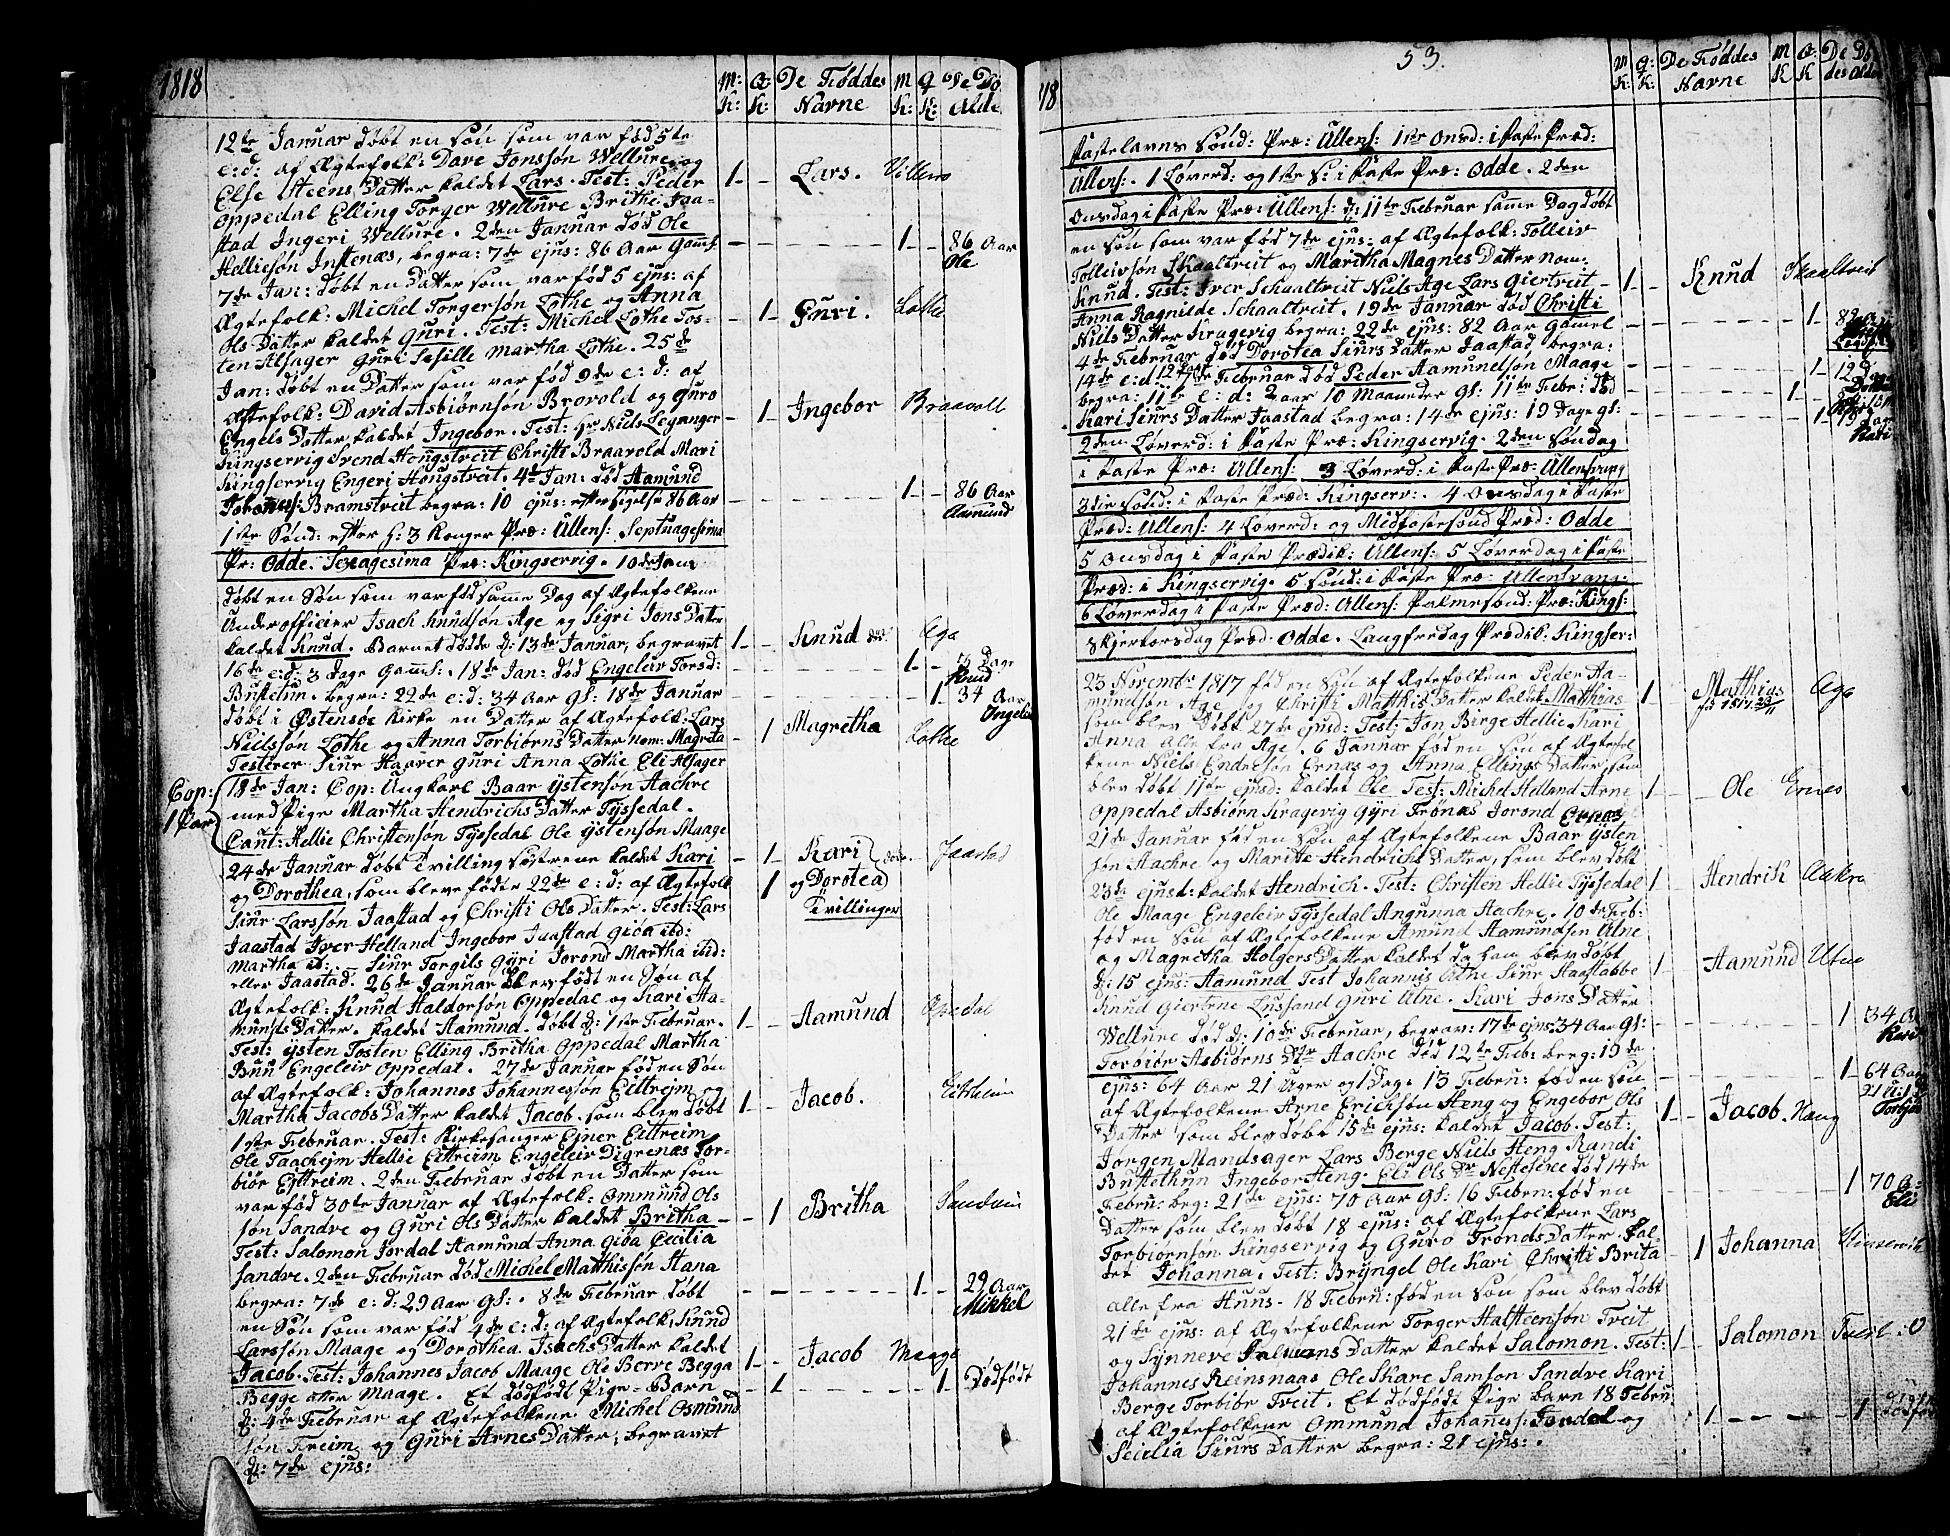 1818
M: K: Q: K: De Føddes Navne M K Q K: De Dö Alde
12te Januar døbt en søn som var fød 5te
e:d: af Ægtefolk: Dave Jonssøn Wellure og
Else Steens Datter kaldet Lars. Test: Peder
Oppedal Elling Torger Wellure Brithe Jaa-
stad Ingeri Wellure. 2den Januar død Ole
Helliesøn Instenæs, begra: 7de ejus: 86 Aar Gaml.
7de Jan: døbt en Datter som var fød 5 ejus: af
Ægtefolk: Michel Torgersøn Lothe og Anna
Ols Datter kaldet Guri. Test: Michel Lothe Tos-
ten Alsager Guri Martha Lothe. 25de
Jan: døbt en Datter som var fød 9de e: d: af
Ægtefolk: David Asbiørnsøn Brovold og Guro
Engels Datter kaldet Ingebor. Test: Hr Niels
Kingservig Svend Hougstveit Christi Braavold Mari
Kingservig Engeri Hougstveit. 4de Jan: død Aamund
Johannes: Bramstveit begra: 10 ejus: efter sigelse 86 Aar
1ste Sønd: efter H: 3 Konger Præ: Ullens: Septuagesima
Pr: Odde. Sexagesima Præ: Kingservig. 10de Jan:
døbt en Søn som var fød samme Dag af Ægtefolkene
Underofficer Isach Knudsøn Age og Sigri Jons Datter
kaldet Knud. Barnet døde d: 13de Januar, begravet
16de e:d: 3 Dage Gaml:. 18de Jan: død Engeleiv Torsd:
Bustetun. begra: 22de e:d: 34 Aar Gl: 18de Januar
døbt i Østensøe Kirke en Datter af Ægtefolk: Lars
Nielssøn Lothe og Anna Torbiørns Datter nom: Magreta
Testerer Siur Haarer Guri Anna Lothe Eli Alsager
Cop: 1 Par
18de Jan: Cop: Ungkarl Baar Ystensøn Aachre
med Pige Martha Hendrichs Datter Tyssedal.
Caut: Hellie Christensøn Tyssedal Ole Ystensøn Maage
24de Januar døbt Tvilling søstrene kaldet Kari
og Dorothea, som bleve fødte 22de e:d: af Ægtefolk
Siur Larssøn Jaastad og Christi Ols Datter. Test: Lars
Jaastad Iver Helland Ingebor Jaastad Gioa ibd:
Martha ib: Siur Torgils Gyri Jorond Martha ibid:
eller Jaastad. 26de Januar blev født en Søn af
Ægtefolk: Knud Haldorsøn Oppedal og Kari Aa-
munds Datter. kaldet Aamund. døbt d: 1ste Februar.
Test: Ysten Tosten Elling Britha Oppedal Martha
Buu Engeleiv Oppedal. 27de Januar fød en Søn
af Ægtefolk: Johannes Johannessøn Eittreim og
Martha Jacobs Datter kaldet Jacob. som blev døbt
1ste Februar. Test: Kirkesanger Ejner Eittreim
Ole Taacheim Hellie Eittreim Engeleiv Digrenæs Tor-
biør Eittreim. 2den Februar døbt en Datter som
var fød 30te Januar af Ægtefolk: Ommund Ols
søn Sandve og Guri Ols Datter kaldet Britha
Test: Salomon Jordal Aamund Anna Gioa Cecilia
Sandve. 2den Februar død Michel Matthissøn Hana
begra: 7de e: d: 29 Aar Gl:. 8de Februar døbt
en Søn som var fød 4de e: d: af Ægtefolk: Knud
Larssøn Maage og Dorothea Isachs Datter kaldet
Jacob. Test: Johannes Jacob Maage Ole Berve Begga
Begge atter Maage. Et dødfødt Pige-Barn
d: 4de Februar af Ægtefolkene Michel Osmund
søn Freim og Guri Arnes Datter; begravet
d: 7de ejus:
1 Lars. Villure
1 86 Aar Ole
1 Guri. Lothe
1 Ingebor Braavolt
1 86 Aar Aamund
1 Knud Aga
1 3 Dage Knud
1 34 Aar
1 Magretha Lothe
1 Kari
1 og Dorotea Jaastad
Tvillinger
1 Aamund Opedal
1 Jacob. Eitheim
1 Britha Sandvin
1 29 Aar Mikkel
1 Jacob Maage
1 1 Dødfödt
53.
18
M K: Q: K: De Føddes Navne M K Q K De Dø des Alder
Fastelavns Sönd: Præ: Ullens: 1ste Onsd: i Faste Præd:
Ullens:. 1 Løverd: og 1ste S: i Faste Præ: Odde. 2den
Onsdag i Faste Præ: Ullens: d: 11te Februar samme Dag døbt
en søn som var fød 7de ejus: af Ægtefolk: Tolleiv
Tolleivsøn Skaaltveit og Maritha Magnes Datter nom:
Knud. Test: Iver Schaaltveit Niels Age Lars Giertveit
Anna Ragnilde Schaaltveit. 19de Januar død Christi
Niels Datter Kragevig begra: 22de ejus: 82 Aar Gamel
4de Februar død Dorotea Siurs Datter Jaastad begra:
14de e:d 12 Februar død Peder Aamundsøn Maage
begra: 11te e: d: 2 aar 10 Maaneder Gl: 11te Febr: død
Kari Siurs Datter Jaastad begra: 14de ejus: 19 Dage Gl:
2den Løverd: i Faste Præ: Kingservig. 2den Søndag
i Faste Præ: Ullens: 3 Løverd: i Faste Præ: Ullensvang
3die sönd: i Faste Præd: Kingserv:. 4 Onsdag i Faste
Præd: Ullens: 4 Løverd: og Midfaste sönd Præd: Odde
5 Onsdag i Faste Prædik: Ullens: 5 Løverdag i Faste
Præd: i Kingservig. 5 sönd: i Faste Præ: Ullensvang:
6 Løverdag i Faste Præd: Ullens: Palmesönd: Præ: Kings:
Skjertorsdag Præd: Odde. Langfredag Prædik: Kingser:
23 Novembr 1817 fød en Søn af Ægtefolkene Peder Aa-
mundsøn Age og Christi Matthis Datter kaldet Matthias
som blev døbt 27de ejusd: Test: Jon Birge Hellie Kari
Anna alle fra Age. 6 Januar fød en søn af Ægtefol
kene Niels Endresøn Ernæs og Anna Ellings Datter, som
blev døbt 11te ejusd: kaldet Ole Test: Michel Helland Arne
Oppedal Asbiørn Kragevig Gyri Trönæs Jorond Ernæs
21de Januar fød en søn af Ægtefolkene Baar Ysten
søn Aachre og Marite Hendrichs Datter, som blev døbt
23de ejusd: kaldet Hendrich. Test: Christen Hellie Tyssedal
Ole Maage Engeleiv Tyssedal Angunna Aachre. 10de Feb:
fød en Søn af Ægtefolkene Amund Aamundsen Utne
og Magretha Holgers Datter kaldet da han blev døbt
d: 15 ejus: Aamund Test Johannis Uthe Siur Haastabbe
Knud Giertne Liusand Guri Utne. Kari Jons Datter
Wellure død d: 10de Februar, begrav: 17de ejus: 34 Aar Gl:
Torbiör Asbiørns Dtr Aachre død 12te Feb: beg: 19de
ejus: 64 Aar 21 Uger og 1 Dag: 13 Februar: fød en søn
af Ægtefolkene Arne Erichsøn Heng og Engebor Ols
Datter som blev døbt 15de ejus: kaldet Jacob. Test:
Jørgen Mandsager Lars Berge Niels Heng Randi
Bustethun Ingebor Heng. Eli Ols Dr Nestesee død 14de
Februar: beg: 21de ejus: 70 Aar Gl: 16 Febru: fød en
Datter som blev døbt 18 ejus: af Ægtefolkene Lars
Torbiørnsøn Kingservig og Guro Tronds Datter. kal-
det Johanna. Test: Bryngel Ole Kari Christi Brita
alle fra Huus. 18 Febru: fød en søn som blev døbt
21de ejus: af Ægtefolkene Torger Halsteensøn Treit
og Synneve Datter kaldet Salomon. Test:
Johannes Reinsnaas Ole Skare Samson Sandve Kari
Berge Torbiör Treit. Et dødfödt Pige barn 18 Febru:
af Ægtefolkene Ommund Johanes: Jordal og
Secilia Siurs Datter begra: 21 ejus:.
1 Knud Skaaltveit
1 82 a
1 12 d
1
1 19 Kari
1 Matthias Aga
fød 1817 23/11
1 Ole Ernes
1 Hendrik Aakre
1 Aamund Utne
1 34 A Kari
1 64 Aar
1 Jacob. Hæng
1 70 A: Eli
1 Johanna Kinservik
1 Salomon
1 1 dödfød